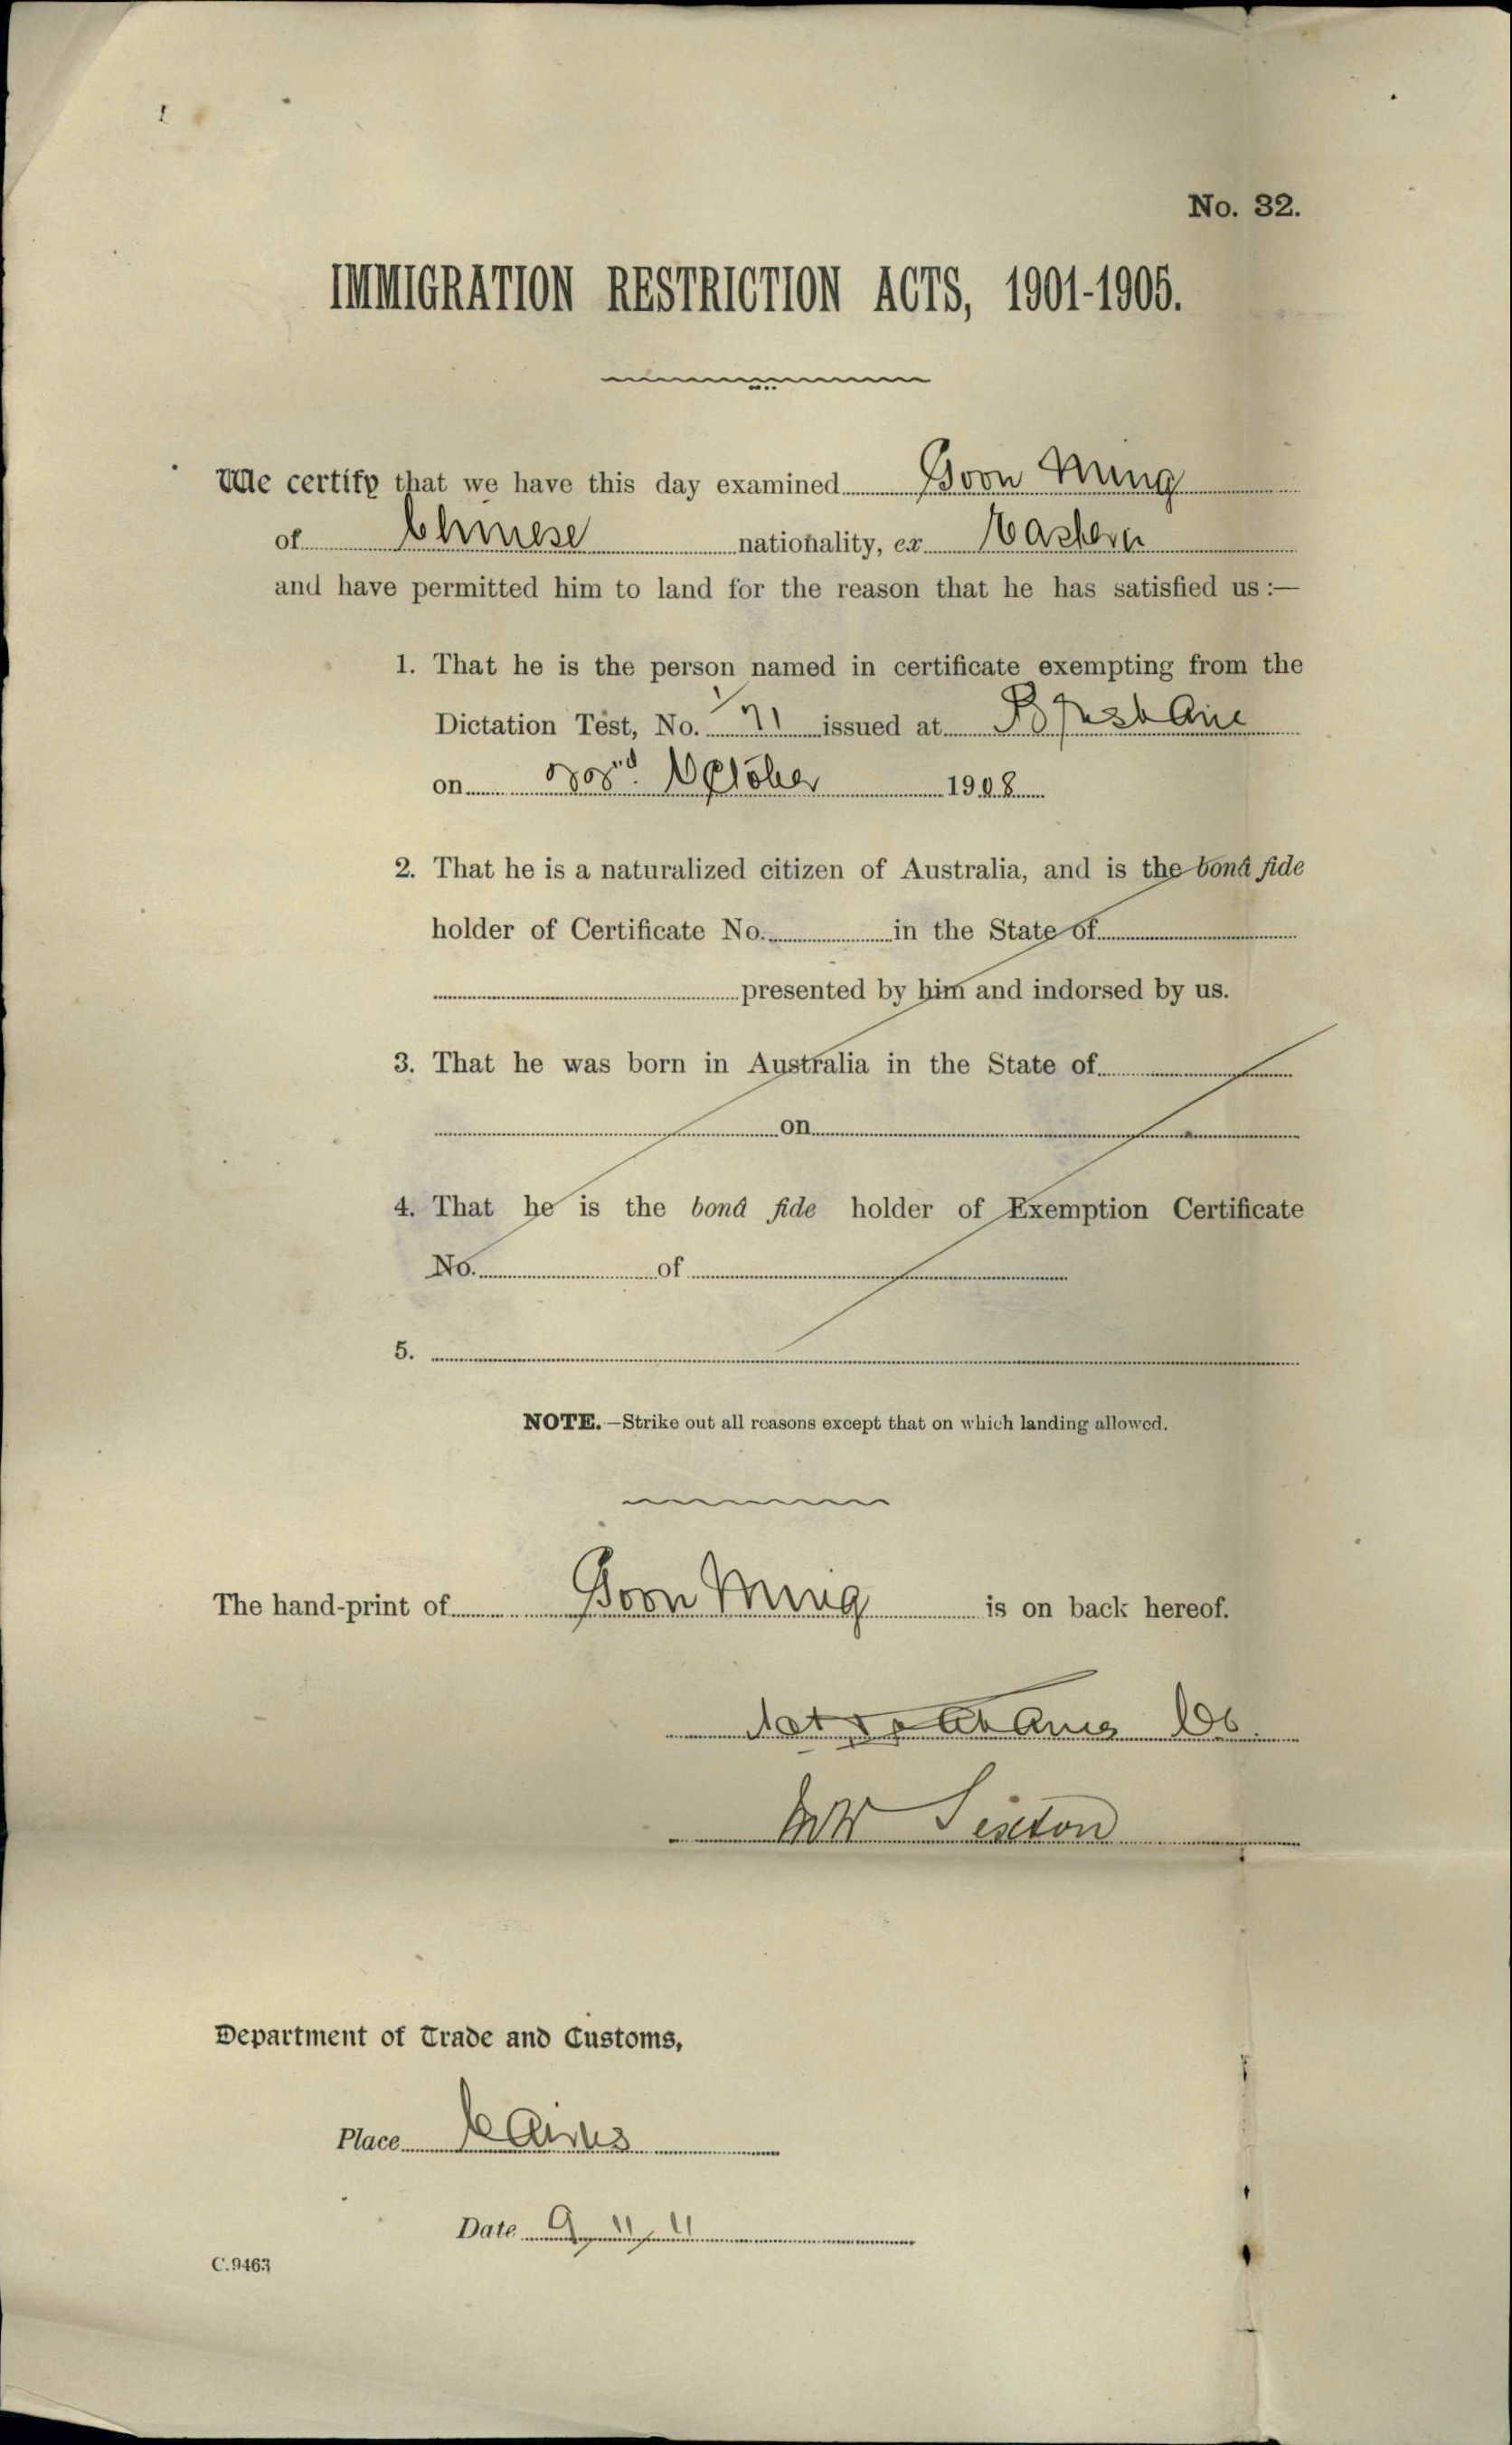 No. 32.
IMMIGRATION RESTRICTION ACTS, 1901-1905.
We certify that we have this day examined Goon Ming
of Chinese nationality, ex Eastern
and have permitted him to land for the reason that he has satisfied us :—
1. That he is the person named in certificate exempting from the
Dictation Test, No. 71 issued at Brisbane
on 22nd October 1908
2. That he is a naturalized citizen of Australia, and is the bonâ fide
holder of Certificate No. in the State of
presented by him and indorsed by us.
3. That he was born in Australia in the State of
on
4. That he is the bonâ fide holder of Exemption Certificate
No. of
5.
NOTE.—Strike out all reasons except that on which landing allowed.
The hand-print of Goon Ming is on back hereof.
Sexton
Department of Trade and Customs,
Place Cairns
Date 9/11/11
C.9463